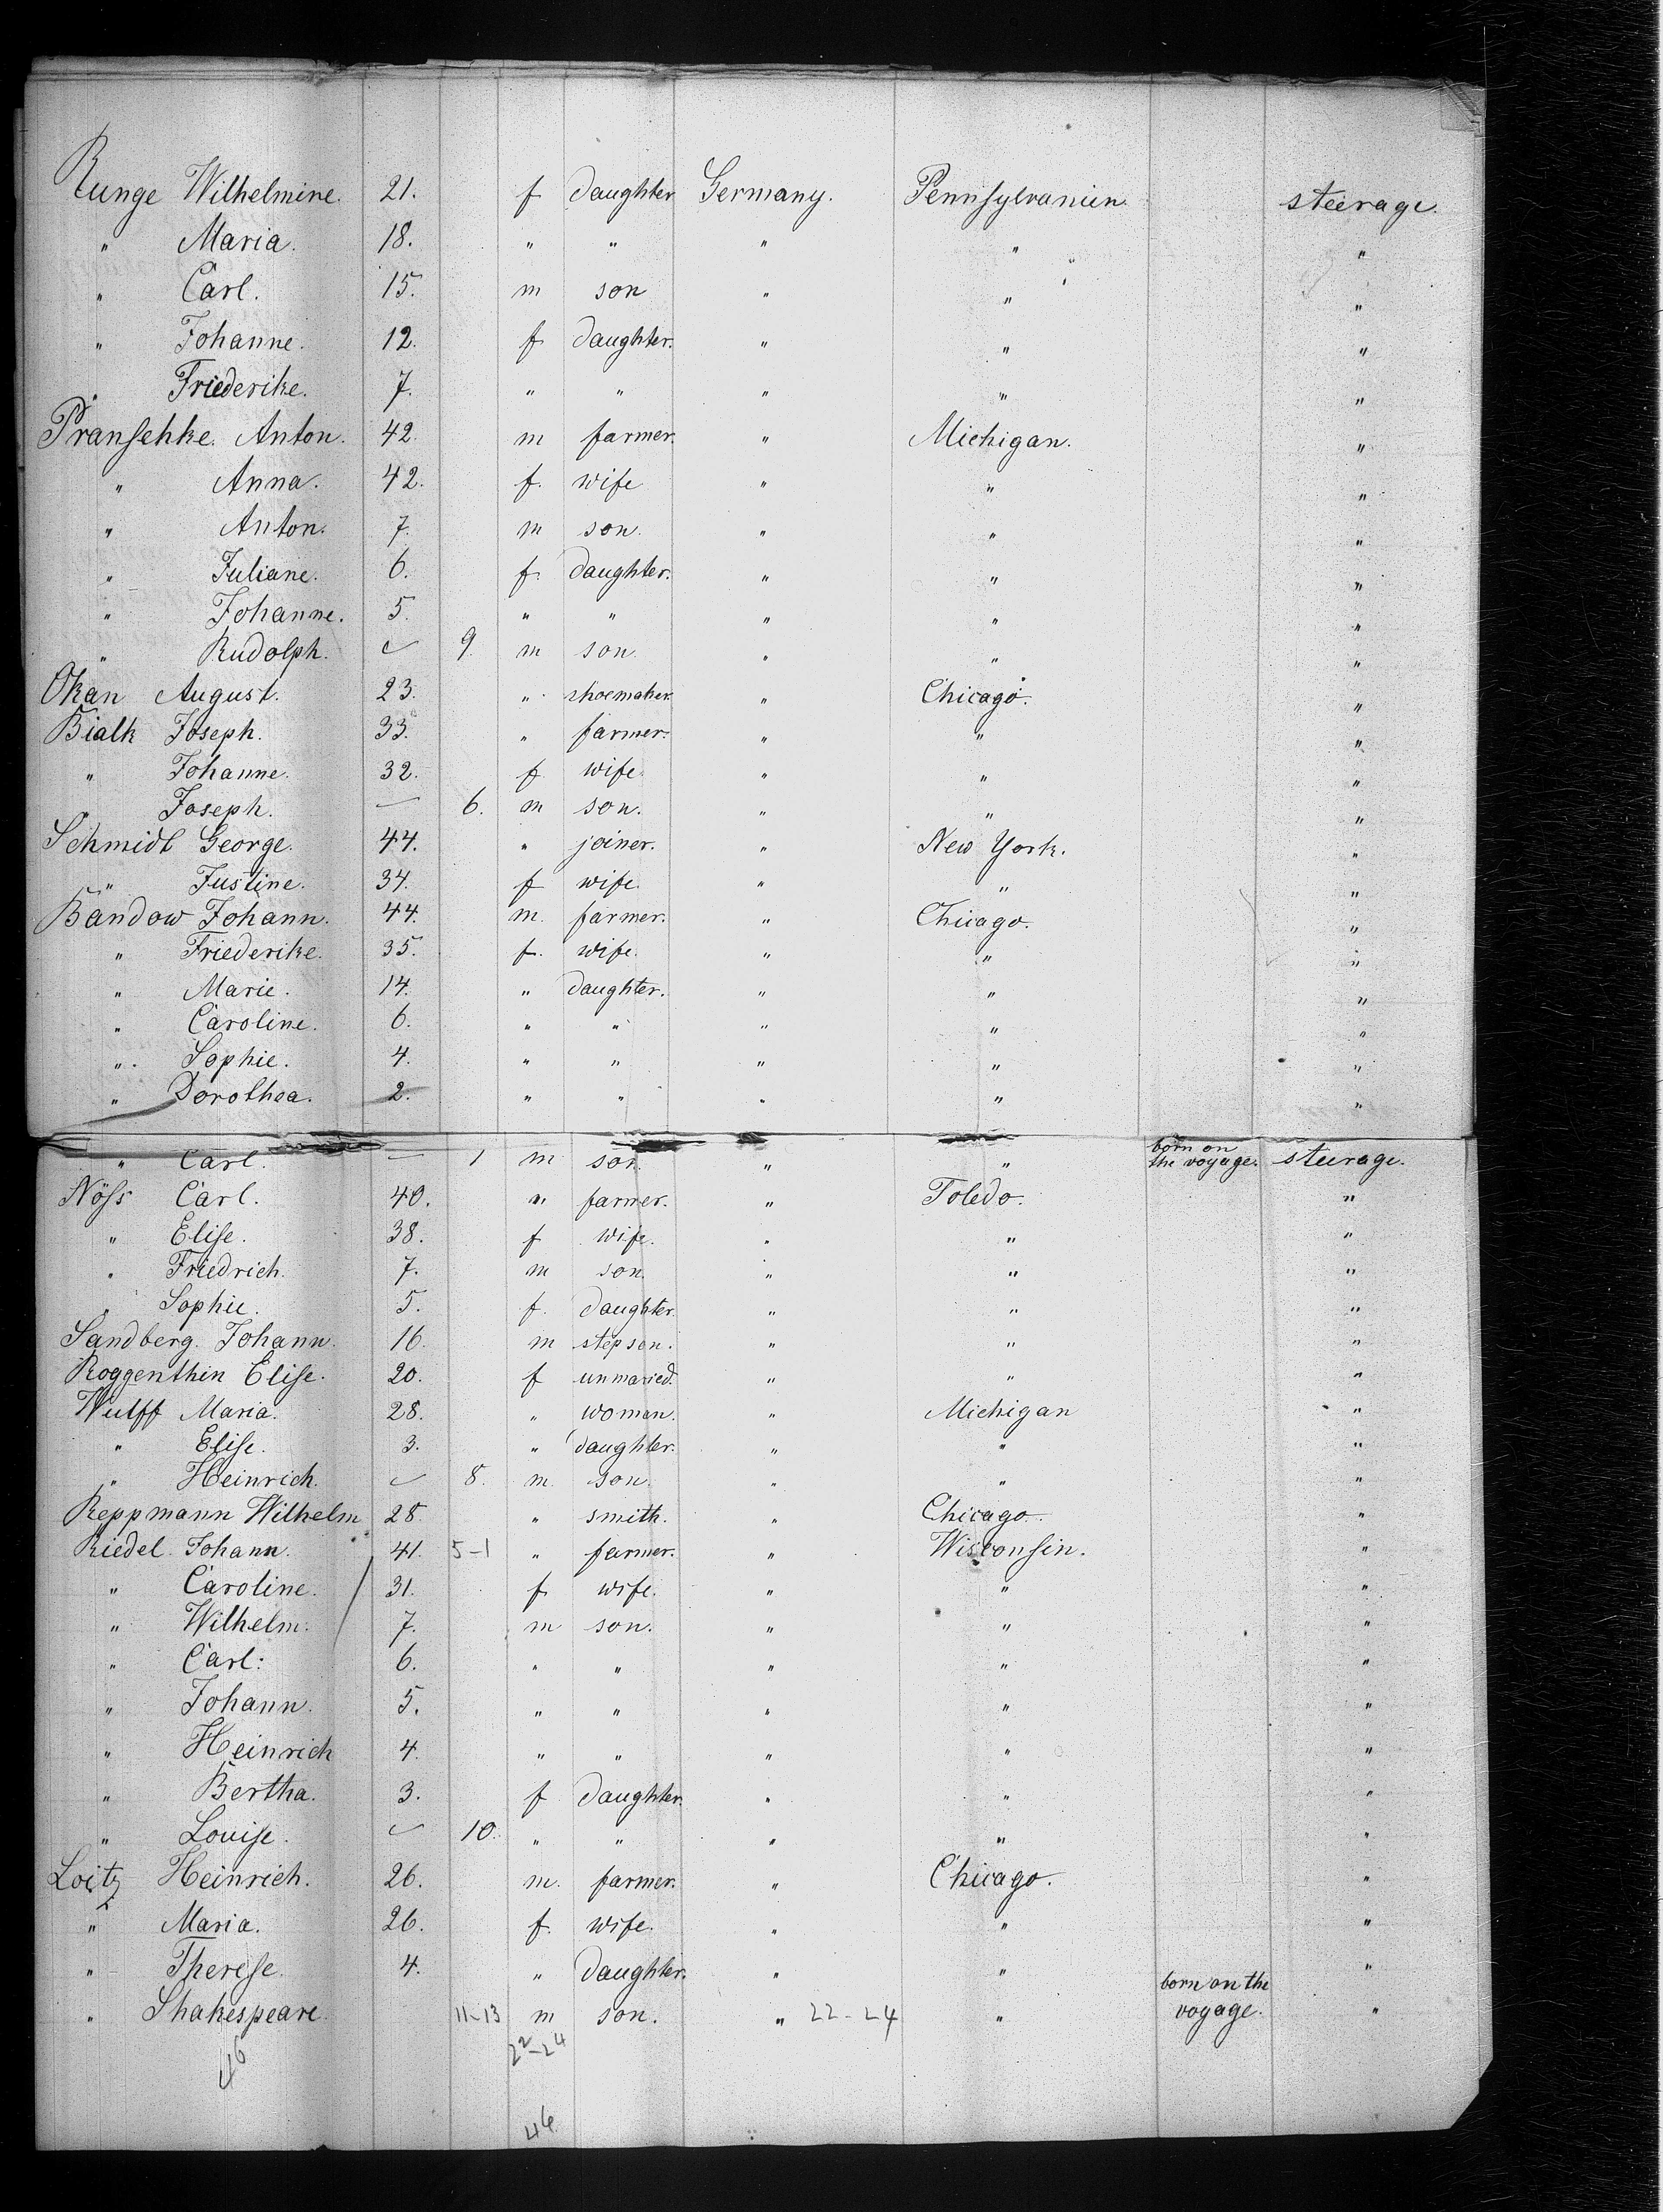 Runge Wilhelmine. 21. f daughter Germany. Pennsylvanien. steerage.
" Maria. 18. " " " " "
" Carl. 15. m son " " "
" Johanne. 12. f daughter. " " "
" Friederike. 7. " " " " "
Pranschke. Anton. 42. m farmer. " Michigan. "
" Anna. 42. f. wife " " "
" Anton. 7. m son. " " "
" Juliane. 6. f. daughter. " " "
" Johanne. 5. " " " " "
" Rudolph. 9. m son. " " "
Okan August. 23. " shoemaker. " Chicago. "
Bialk Joseph. 33. " farmer. " " "
" Johanne. 32. f wife. " " "
" Joseph. — 6. m son. " " "
Schmidt George. 44. " joiner. " New York. "
" Justine. 34. f wife. " " "
Bandow Johann. 44. m. farmer. " Chicago. "
" Friederike. 35. f. wife. " " "
" Marie. 14. " daughter. " " "
" Caroline. 6. " " " " "
" Sophie. 4. " " " " "
" Dorothea. 2. " " " " "
" Carl. — 1 m son. " " born on the voyage. steerage.
Nöss Carl. 40. " farmer. " Toledo. "
" Elise. 38. f wife. " " "
" Friedrich. 7. m son. " " "
" Sophie. 5. f. daughter. " " "
Sandberg. Johann. 16. m stepson. " " "
Roggenthin Elise. 20. f unmaried. " " "
Wulff Maria. 28. " woman. " Michigan "
" Elise. 3. " daughter. " " "
" Heinrich. 8. m. son. " " "
Reppmann Wilhelm 28. " smith. " Chicago. "
Riedel Johann. 41. 5-1 " farmer. " Wisconsin. "
" Caroline. 31. f wife. " " "
" Wilhelm. 7. m son. " " "
" Carl. 6. " " " " "
" Johann. 5. " " " " "
" Heinrich 4. " " " " "
" Bertha. 3. f daughter. " " "
" Louise. 10. " " " " "
Loitz Heinrich. 26. m. farmer. " Chicago. "
" Maria. 26. f. wife. " " "
" Therese. 4. " daughter. " " "
" Shakespeare. 11-13 m son. " 22-24 " born on the voyage. "
46 22-24
46